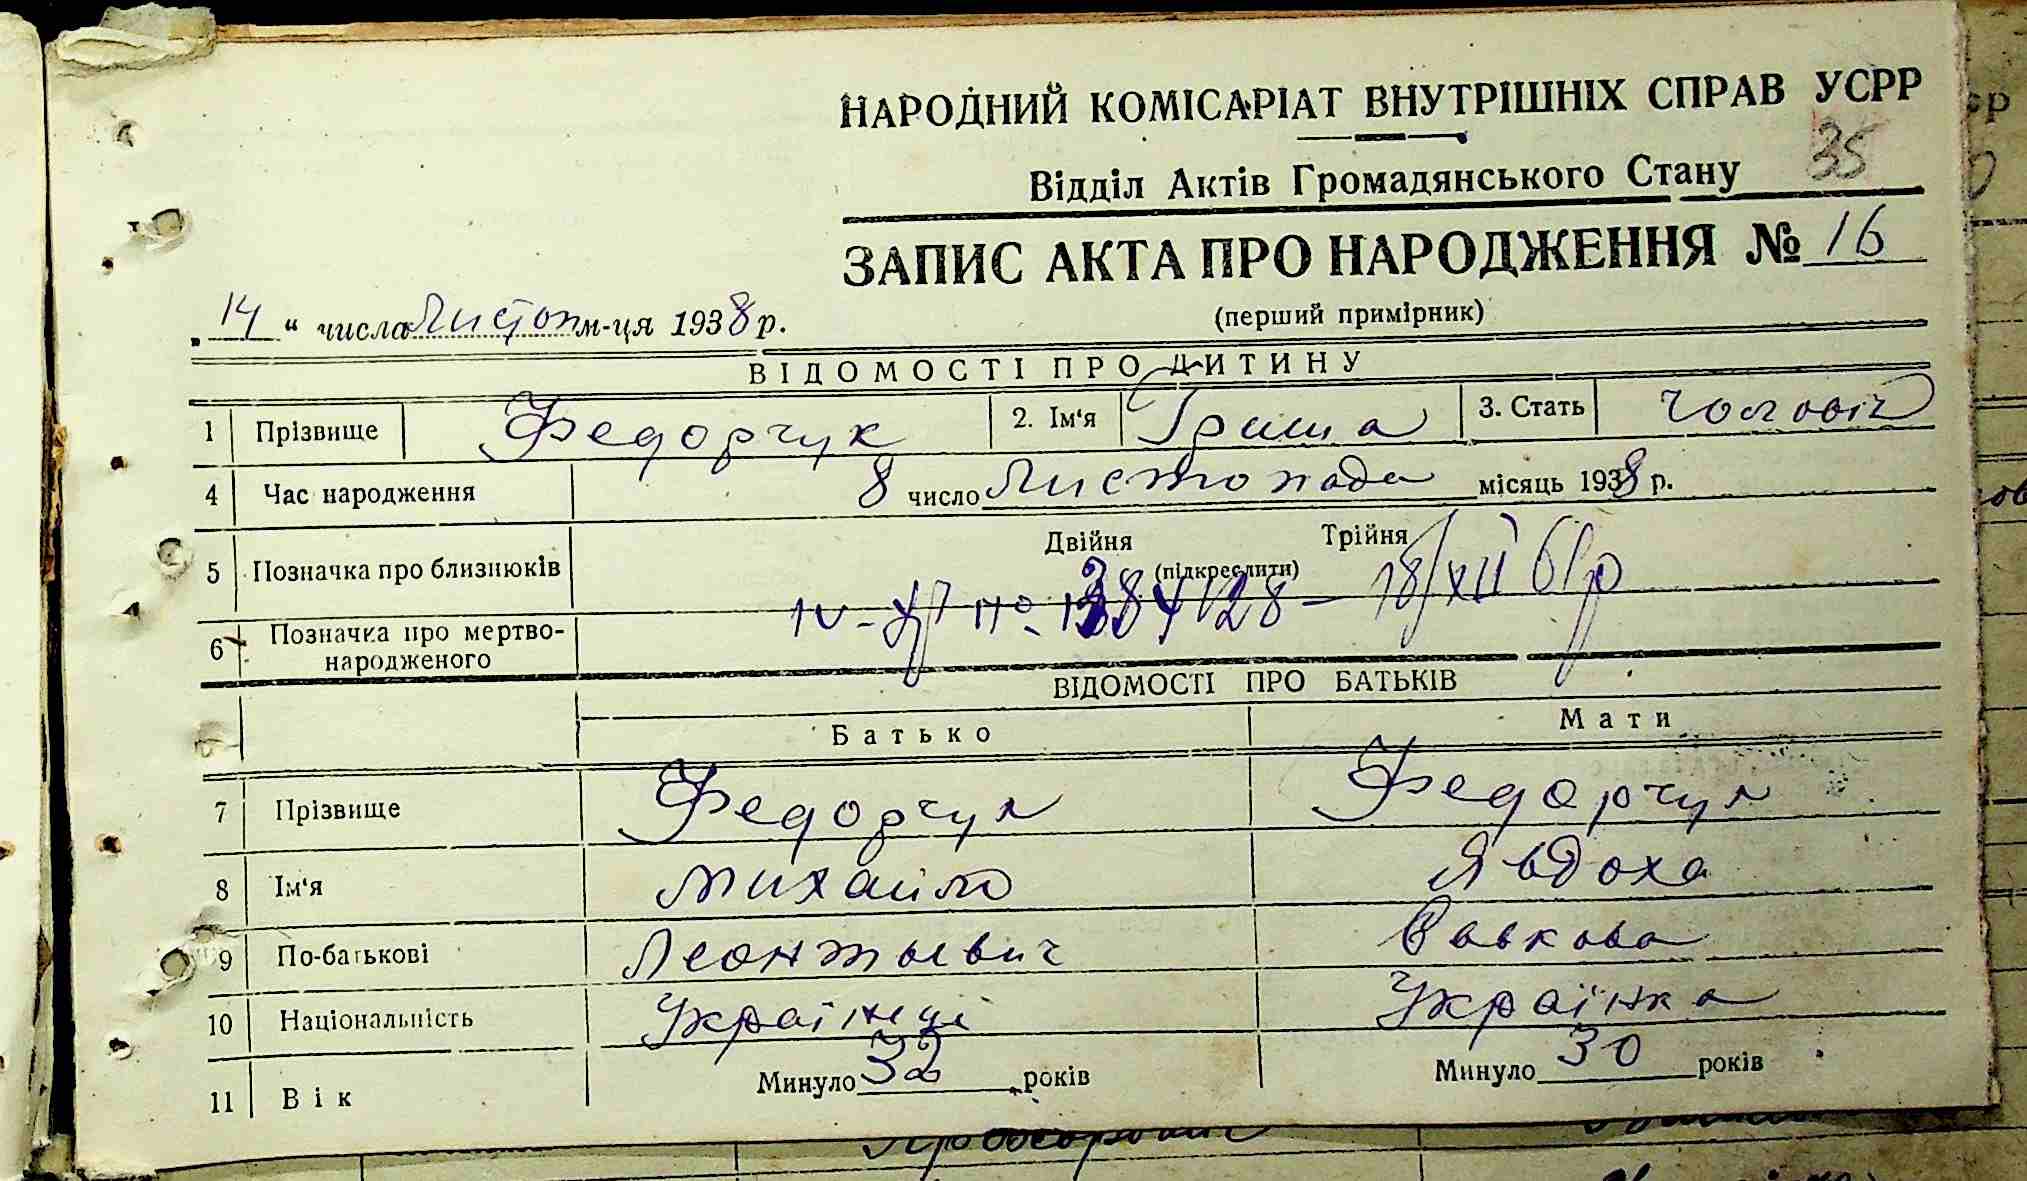 НАРОДНИЙ КОМІСАРІАТ ВНУТРІШНІХ СПРАВ УСРР
35
Відділ Актів Громадянського Стану
ЗАПИС АКТА ПРО НАРОДЖЕННЯ № 16
(перший примірник)
„14“ числа Листоп м-ця 1938 р.
ВІДОМОСТІ ПРО ДИТИНУ
1 Прізвище Федорчук 2. Ім'я Гриша 3. Стать чоловіч
4 Час народження 8 число Листопада місяць 1938 р.
5 Позначка про близнюків Двійня Трійня
(підкреслити)
18/XII 61 р
6 Позначка про мертво-
народженого
ВІДОМОСТІ ПРО БАТЬКІВ
Батько Мати
7 Прізвище Федорчук Федорчук
8 Ім'я Михайло Явдоха
9 По-батькові Леонтьевич Савкова
10 Національність Українці Українка
11 Вік Минуло 32 років Минуло 30 років